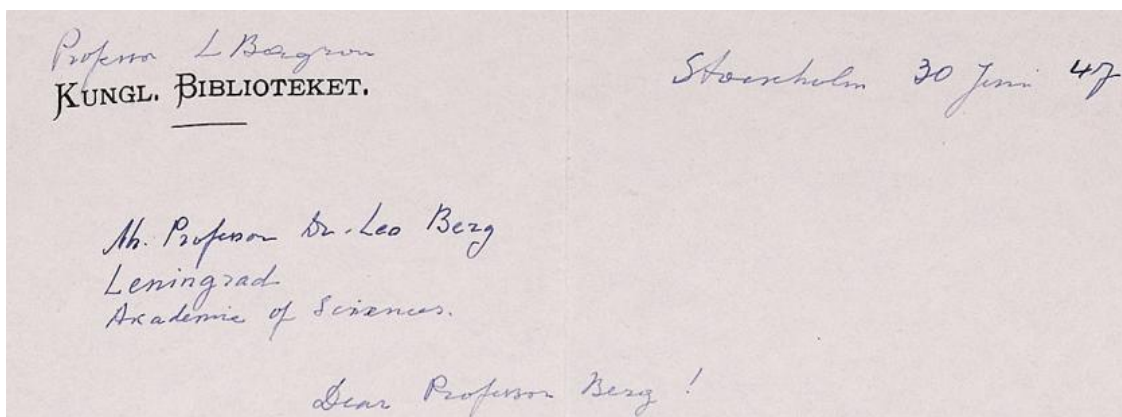 Professor L Bagrow
KUNGL. BIBLIOTEKET.
Stockholm 30 Juni 47
Mr. Professor Dr. Leo Berg
Leningrad
Akademie of Sciences.
Dear Professor Berg !